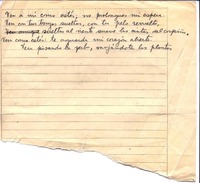 Ven a mí como estés; no prolongues mi espera.
Ven con tus trenzas sueltas, con tu pelo revuelto,
suelta al viento suave la cinta, del corpiño,
Ven como estés: te aguarda mi corazón abierto.
Ven pisando la yerba, mojándote las plantas